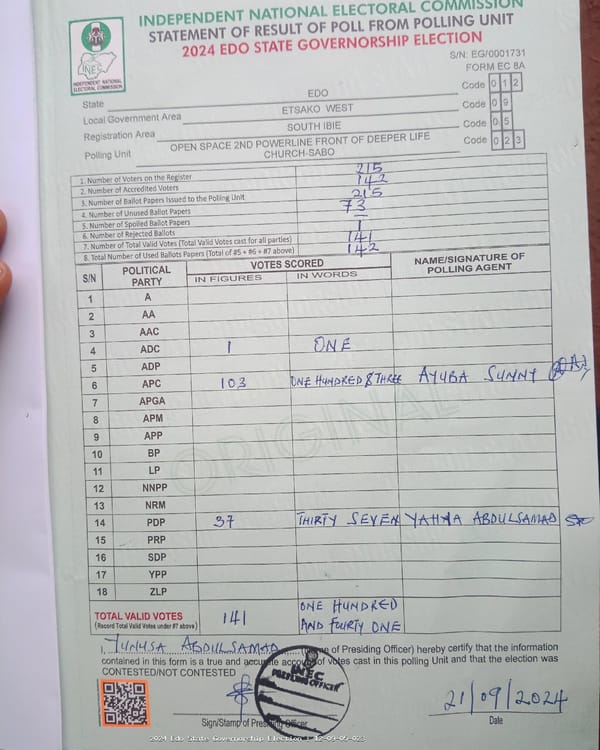 INDEPENDENT NATIONAL ELECTORAL COMMISSION
STATEMENT OF RESULT OF POLL FROM POLLING UNIT
2024 EDO STATE GOVERNORSHIP ELECTION
INEC
INDEPENDENT NATIONAL
ELECTORAL COMMISSION
S/N: EG/0001731
FORM EC 8A
State EDO Code 0 1 2
Local Government Area ETSAKO WEST Code 0 9
Registration Area SOUTH IBIE Code 0 5
Polling Unit OPEN SPACE 2ND POWERLINE FRONT OF DEEPER LIFE CHURCH-SABO Code 0 2 3
1. Number of Voters on the Register 215
2. Number of Accredited Voters 142
3. Number of Ballot Papers Issued to the Polling Unit 215
4. Number of Unused Ballot Papers 73
5. Number of Spoiled Ballot Papers –
6. Number of Rejected Ballots 1
7. Number of Total Valid Votes (Total Valid Votes cast for all parties) 141
8. Total Number of Used Ballots Papers (Total of #5 + #6 + #7 above) 142
S/N POLITICAL PARTY VOTES SCORED NAME/SIGNATURE OF POLLING AGENT
IN FIGURES IN WORDS
1 A
2 AA
3 AAC
4 ADC 1 ONE
5 ADP
6 APC 103 ONE HUNDRED & THREE AYUBA SUNNY
7 APGA
8 APM
9 APP
10 BP
11 LP
12 NNPP
13 NRM
14 PDP 37 THIRTY SEVEN YAHYA ABDULSAMAD
15 PRP
16 SDP
17 YPP
18 ZLP
ORIGINAL
TOTAL VALID VOTES 141 ONE HUNDRED
(Record Total Valid Votes under #7 above) AND FOURTY ONE
I, YUNUSA ABDULSAMAD of Presiding Officer) hereby certify that the information
contained in this form is a true and accurate account of votes cast in this polling Unit and that the election was
CONTESTED/NOT CONTESTED
INEC
PRESIDING OFFICER
21/09/2024
Sign/Stamp of Presiding Officer
Date
2024 Edo State Governorship Election - 12-09-05-023